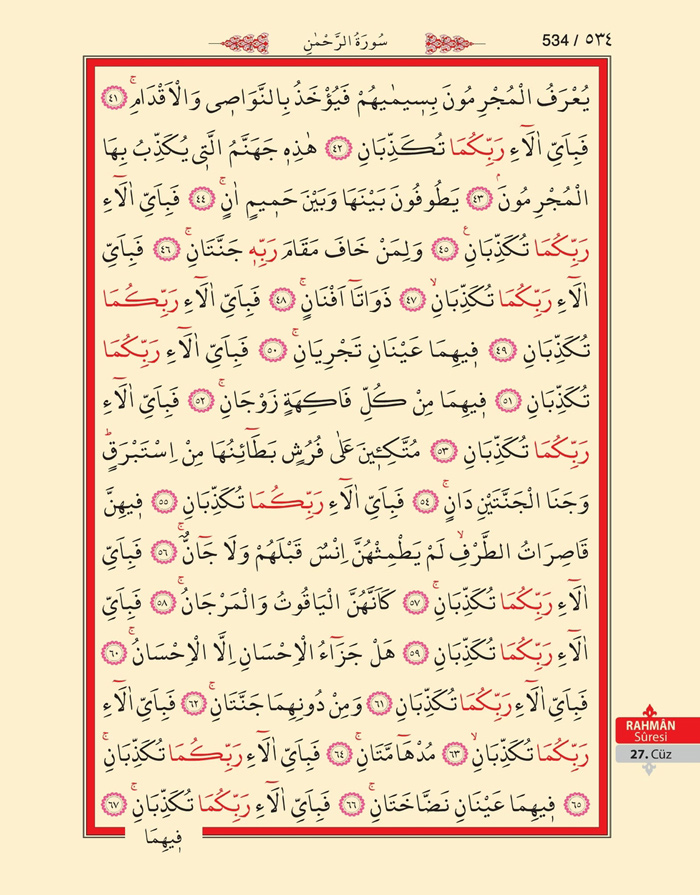 سُورَةُ الرَّحْمٰنِ
534 / ٥٣٤
يُعْرَفُ الْمُجْرِمُونَ بِسِيمٰيهُمْ فَيُؤْخَذُ بِالنَّوَاصِي وَالْاَقْدَامِۚ ﴿٤١﴾
فَبِاَيِّ اٰلَٓاءِ رَبِّكُمَا تُكَذِّبَانِ ﴿٤٢﴾ هٰذِهِ جَهَنَّمُ الَّتِي يُكَذِّبُ بِهَا
الْمُجْرِمُونَۢ ﴿٤٣﴾ يَطُوفُونَ بَيْنَهَا وَبَيْنَ حَمِيمٍ اٰنٍۚ ﴿٤٤﴾ فَبِاَيِّ اٰلَٓاءِ
رَبِّكُمَا تُكَذِّبَانِ۟ ﴿٤٥﴾ وَلِمَنْ خَافَ مَقَامَ رَبِّهِ جَنَّتَانِۚ ﴿٤٦﴾ فَبِاَيِّ
اٰلَٓاءِ رَبِّكُمَا تُكَذِّبَانِۙ ﴿٤٧﴾ ذَوَاتَٓا اَفْنَانٍۚ ﴿٤٨﴾ فَبِاَيِّ اٰلَٓاءِ رَبِّكُمَا
تُكَذِّبَانِ ﴿٤٩﴾ فِيهِمَا عَيْنَانِ تَجْرِيَانِۚ ﴿٥٠﴾ فَبِاَيِّ اٰلَٓاءِ رَبِّكُمَا
تُكَذِّبَانِ ﴿٥١﴾ فِيهِمَا مِنْ كُلِّ فَاكِهَةٍ زَوْجَانِۚ ﴿٥٢﴾ فَبِاَيِّ اٰلَٓاءِ
رَبِّكُمَا تُكَذِّبَانِ ﴿٥٣﴾ مُتَّكِـِٔينَ عَلٰى فُرُشٍ بَطَٓائِنُهَا مِنْ اِسْتَبْرَقٍۜ
وَجَنَا الْجَنَّتَيْنِ دَانٍۚ ﴿٥٤﴾ فَبِاَيِّ اٰلَٓاءِ رَبِّكُمَا تُكَذِّبَانِ ﴿٥٥﴾ فِيهِنَّ
قَاصِرَاتُ الطَّرْفِۙ لَمْ يَطْمِثْهُنَّ اِنْسٌ قَبْلَهُمْ وَلَا جَٓانٌّۚ ﴿٥٦﴾ فَبِاَيِّ
اٰلَٓاءِ رَبِّكُمَا تُكَذِّبَانِۚ ﴿٥٧﴾ كَاَنَّهُنَّ الْيَاقُوتُ وَالْمَرْجَانُۚ ﴿٥٨﴾ فَبِاَيِّ
اٰلَٓاءِ رَبِّكُمَا تُكَذِّبَانِ ﴿٥٩﴾ هَلْ جَزَٓاءُ الْاِحْسَانِ اِلَّا الْاِحْسَانُۚ ﴿٦٠﴾
فَبِاَيِّ اٰلَٓاءِ رَبِّكُمَا تُكَذِّبَانِ ﴿٦١﴾ وَمِنْ دُونِهِمَا جَنَّتَانِۚ ﴿٦٢﴾ فَبِاَيِّ اٰلَٓاءِ
رَبِّكُمَا تُكَذِّبَانِۙ ﴿٦٣﴾ مُدْهَٓامَّتَانِۚ ﴿٦٤﴾ فَبِاَيِّ اٰلَٓاءِ رَبِّكُمَا تُكَذِّبَانِۚ
﴿٦٥﴾ فِيهِمَا عَيْنَانِ نَضَّاخَتَانِۚ ﴿٦٦﴾ فَبِاَيِّ اٰلَٓاءِ رَبِّكُمَا تُكَذِّبَانِۚ ﴿٦٧﴾
فِيهِمَا
RAHMÂN
Sûresi
27. Cüz